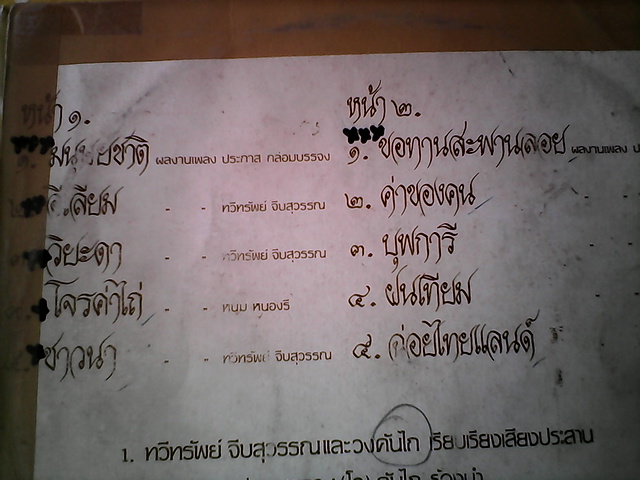 หน้า ๑.
๑. มนุษยชาติ ผลงานเพลง ประภาส กล่อมบรรจง
เลียม - - ทวีทรัพย์ จีบสุวรรณ
วิยะดา ทวีทรัพย์ จีบสุวรรณ
โจรค่าไถ่ - - หนุ่ม หนองรี
ชาวนา - - ทวีทรัพย์ จีบสุวรรณ
หน้า ๒.
๑. ขอทานสะพานลอย ผลงานเพลง ป
๒. ค่าของคน
๓. บุพการี
๔. ฝนเทียม
๕. ไทยแลนด์
1. ทวีทรัพย์ จีบสุวรรณและวงคันไถ เรียบเรียงเสียงประสาน